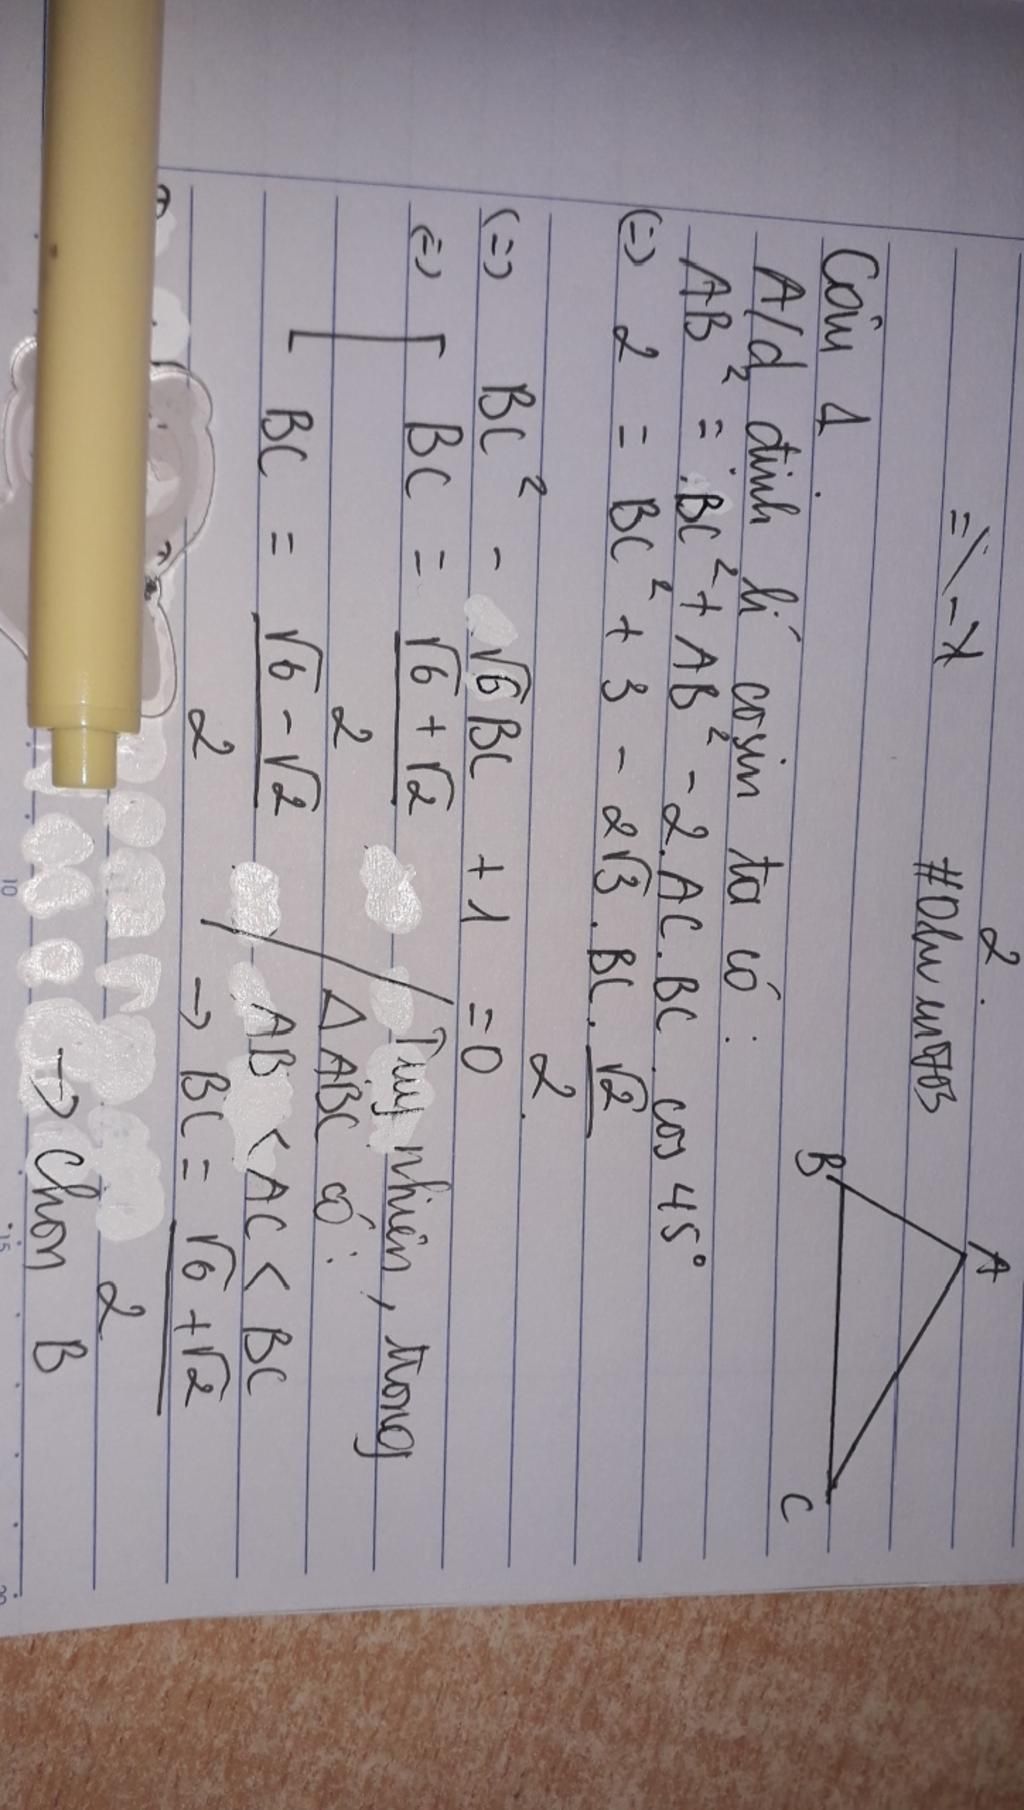 2
#Olm urr0703
Câu 1
A
B
C
A/d định lí cosin ta có:
AB² = BC² + AB² - 2.AC.BC.cos 45°
(=) 2 = BC² + 3 - 2√3.BC.√2/2.
(=) BC² - √6BC + 1 = 0
(=) [ BC = (√6+√2)/2
BC = (√6-√2)/2
Tuy nhiên, trong
Δ ABC có:
AB < AC < BC
→ BC = (√6+√2)/2
→ Chọn B
10
15
20